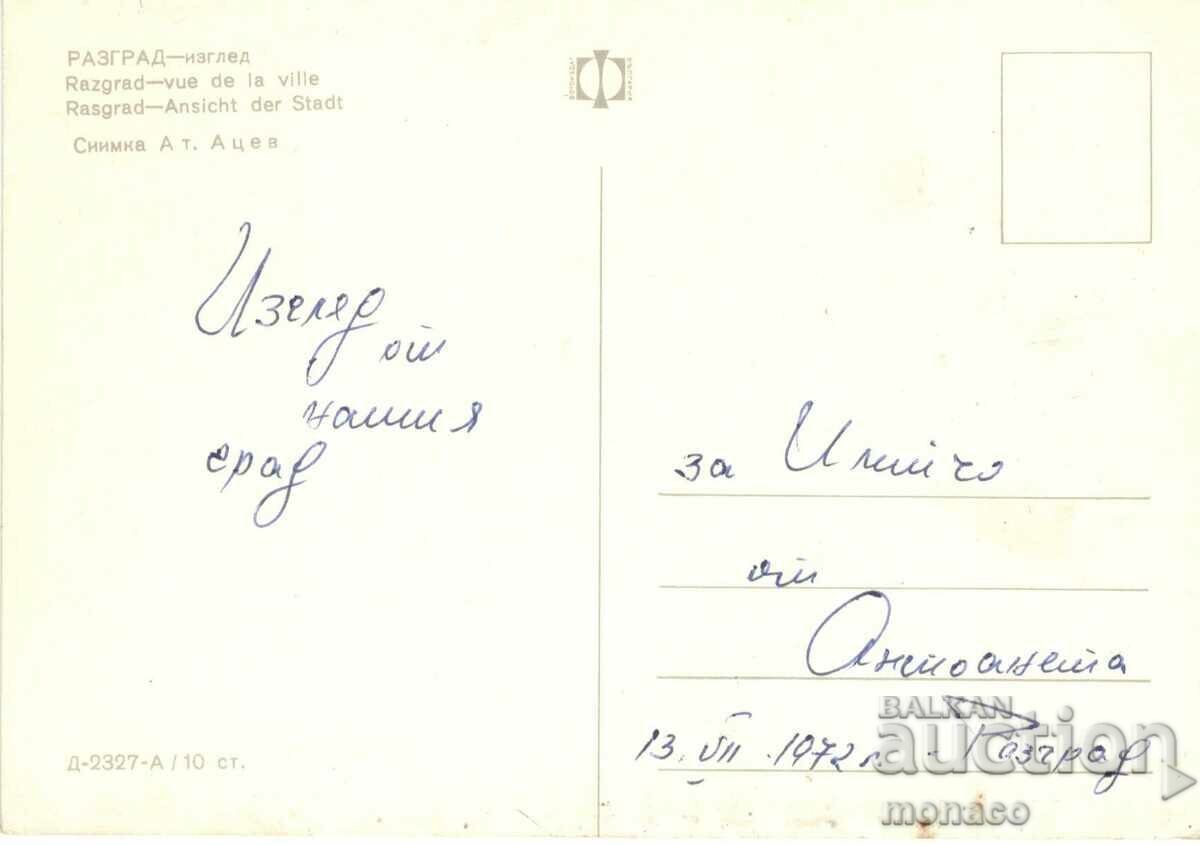 РАЗГРАД—изглед
Razgrad—vue de la ville
Rasgrad—Ansicht der Stadt
Снимка Ат. Ацев
Изглед
от
нашия
град
за Илийчо
от
Антоанета
13. VII. 1972 г. Разград
Д-2327-А / 10 ст.
BALKAN
auction
monaco